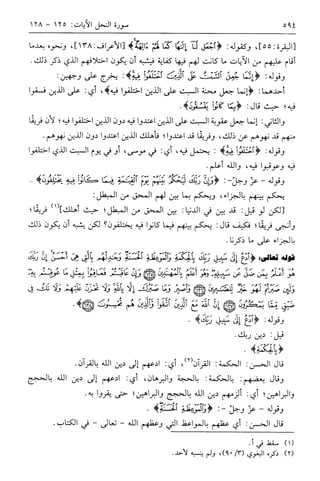 ٥٩٤ سورة النحل الآيات: ١٢٥ - ١٢٨
[البقرة: ٥٥]، وكقوله: ﴿اجْعَل لَّنَا إِلَٰهًا كَمَا لَهُمْ آلِهَةٌ﴾ [الأعراف: ١٣٨]، ونحوه بعدما
أقام عليهم من الآيات ما كانت لهم فيها كفاية فيشبه أن يكون اختلافهم الذي ذكر ذلك.
وقوله: ﴿إِنَّمَا جُعِلَ السَّبْتُ عَلَى الَّذِينَ اخْتَلَفُوا فِيهِ﴾: يخرج على وجهين:
أحدهما: إنما جعل محنة السبت على الذين اختلفوا فيه، أي: على الذين فسقوا
فيه؛ حيث قال: ﴿بِمَا كَانُوا يَفْسُقُونَ﴾.
والثاني: إنما جعل عقوبة السبت على الذين اعتدوا فيه دون الذين اختلفوا فيه؛ لأن فريقًا
منهم قد نهوهم عن ذلك، وفريقًا قد اعتدوا؛ فأهلك الذين اعتدوا دون الذين نهوهم.
وقوله: ﴿اخْتَلَفُوا فِيهِ﴾: يحتمل فيه، أي: في موسى، أو في يوم السبت الذي اختلفوا
فيه وعوقبوا فيه، والله أعلم.
وقوله - عز وجل-: ﴿وَإِنَّ رَبَّكَ لَيَحْكُمُ بَيْنَهُمْ يَوْمَ الْقِيَامَةِ فِيمَا كَانُوا فِيهِ يَخْتَلِفُونَ﴾.
يحكم بينهم بالجزاء، ويحكم بما بين لهم المحق من المبطل:
[لكن لو قيل: قد بين لهم في الدنيا: بين المحق من المبطل؛ حيث أهلك](١) فريقًا؛
وأنجى فريقًا؛ فكيف قال: يحكم بينهم فيما كانوا فيه يختلفون؟ لكن يشبه أن يكون ذلك
بالجزاء على ما ذكرنا.
قوله تعالى: ﴿ادْعُ إِلَىٰ سَبِيلِ رَبِّكَ بِالْحِكْمَةِ وَالْمَوْعِظَةِ الْحَسَنَةِ وَجَادِلْهُم بِالَّتِي هِيَ أَحْسَنُ إِنَّ رَبَّكَ
هُوَ أَعْلَمُ بِمَن ضَلَّ عَن سَبِيلِهِ وَهُوَ أَعْلَمُ بِالْمُهْتَدِينَ ﴿١٢٥﴾ وَإِنْ عَاقَبْتُمْ فَعَاقِبُوا بِمِثْلِ مَا عُوقِبْتُم بِهِ
وَلَئِن صَبَرْتُمْ لَهُوَ خَيْرٌ لِّلصَّابِرِينَ ﴿١٢٦﴾ وَاصْبِرْ وَمَا صَبْرُكَ إِلَّا بِاللَّهِ وَلَا تَحْزَنْ عَلَيْهِمْ وَلَا تَكُ فِي
ضَيْقٍ مِّمَّا يَمْكُرُونَ ﴿١٢٧﴾ إِنَّ اللَّهَ مَعَ الَّذِينَ اتَّقَوا وَّالَّذِينَ هُم مُّحْسِنُونَ ﴿١٢٨﴾﴾.
وقوله: ﴿ادْعُ إِلَىٰ سَبِيلِ رَبِّكَ﴾.
قيل: دين ربك.
﴿بِالْحِكْمَةِ﴾.
قال الحسن: الحكمة: القرآن(٢)، أي: ادعهم إلى دين الله بالقرآن.
وقال بعضهم: بالحكمة: بالحجة والبرهان، أي: ادعهم إلى دين الله بالحجج
والبراهين؛ أي: ألزمهم دين الله بالحجج والبراهين؛ حتى يقروا به.
وقوله - عز وجل -: ﴿وَالْمَوْعِظَةِ الْحَسَنَةِ﴾.
قال الحسن: أي عظهم بالمواعظ التي وعظهم الله - تعالى - في الكتاب.
(١) سقط في أ.
(٢) ذكره البغوي (٩٠/٣)، ولم ينسبه لأحد.